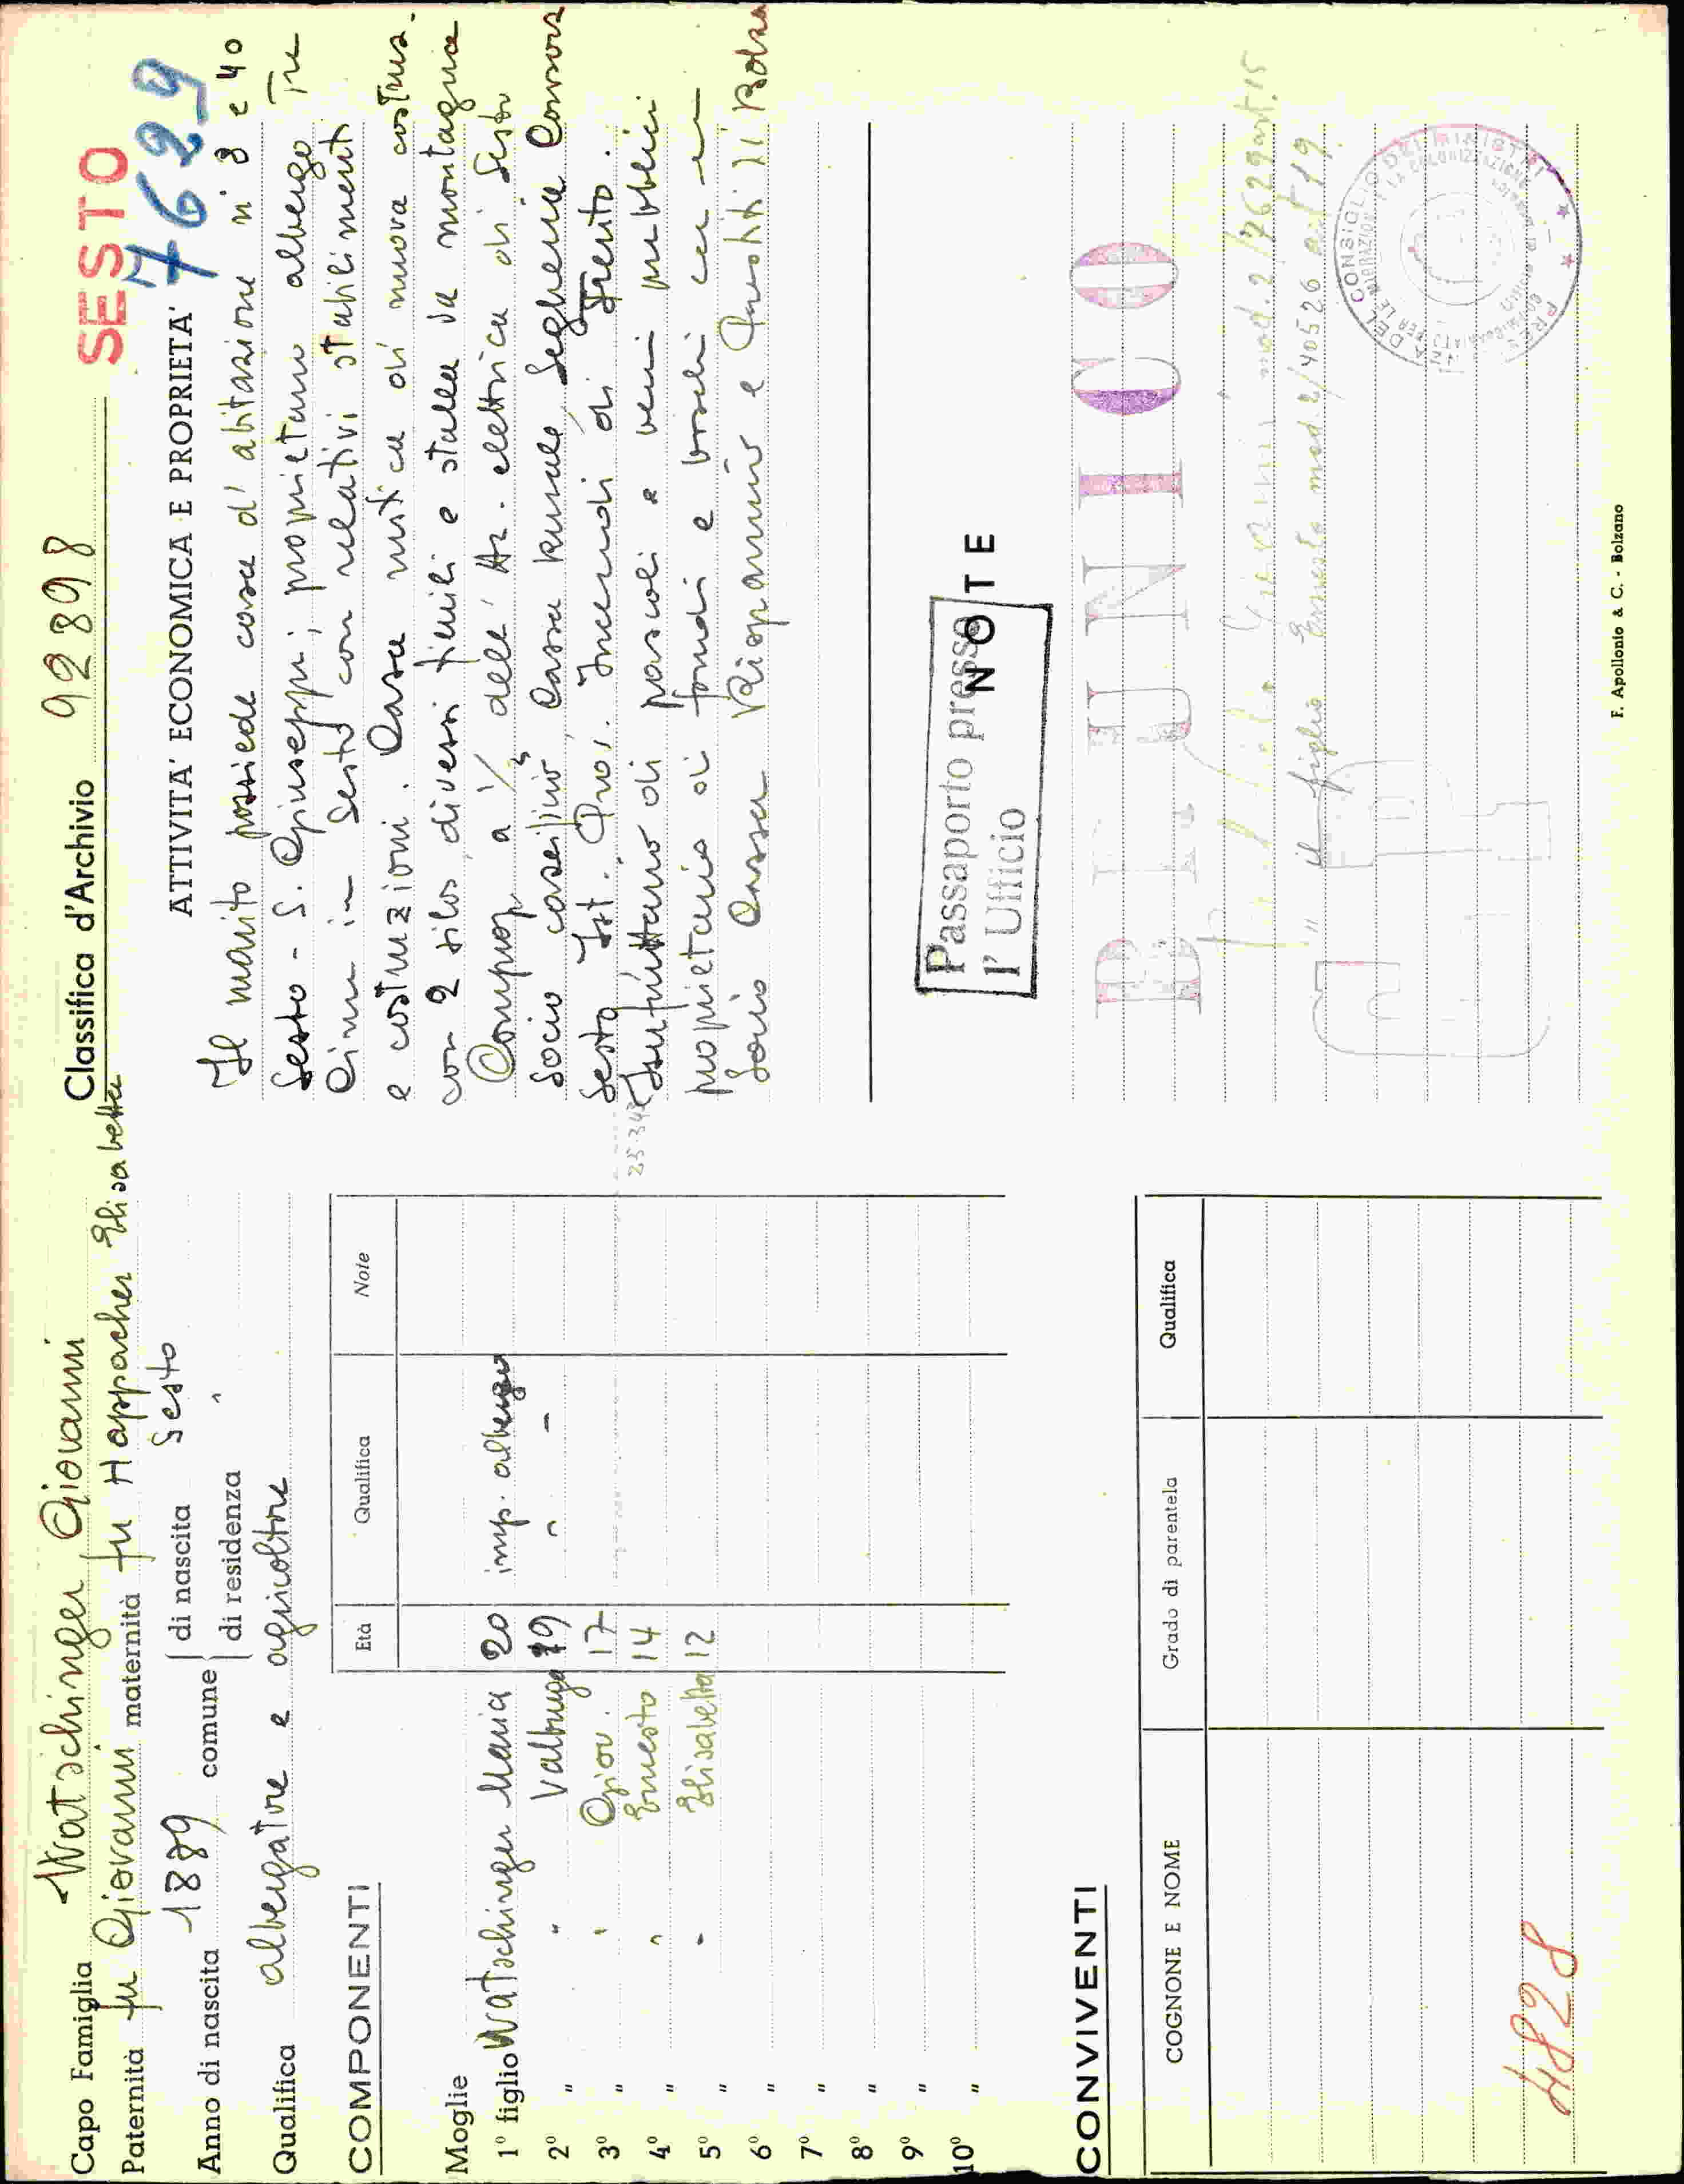 Capo Famiglia Watschinger Giovanni
Paternità fu Giovanni maternità fu Happacher Elisabetta
Anno di nascita 1889 comune di nascita Sesto
di residenza "
Qualifica albergatore e agricoltore
COMPONENTI
Età Qualifica Note
Moglie
1° figlio Watschinger Maria 20 imp. albergo
2° " " Valburga 19 " -
3° " " Giov. 17
4° " " Ernesto 14
5° " " Elisabetta 12
6° "
7° "
8° "
9° "
10° "
CONVIVENTI
COGNONE E NOME Grado di parentela Qualifica
4828
Classifica d'Archivio 92898
SESTO
7629
ATTIVITA' ECONOMICA E PROPRIETA'
Il marito possiede casa d'abitazione ni 8 e 40
Sesto - S. Giuseppe; proprietario albergo Tre
Cime in Sesto con relativi stabilimenti
e costruzioni. Casa rustica di nuova costruz.
con 2 silos, diversi fienili e stalla da montagna
Comprop. a 1/ dell' Az. elettrica di Sesto
Socio caseificio, Cassa Rurale, Segheria Consor
Sesto Ist. Prov. Incendi di Trento.
Usufruttuario di pascoli e beni pubblici
25.342
proprietario di fondi e boschi ca
Socio Cassa Risparmio e Prestiti di Bolza
NOTE
Passaporto presso
l' Ufficio
DEFUNICO
Giovanni mod. 2/7629 art. 15
" il figlio Ernesto mod. 2/40526 art 19
PRESIDENZA DEL CONSIGLIO DEI MINISTRI
F. Apollonio & C. - Bolzano